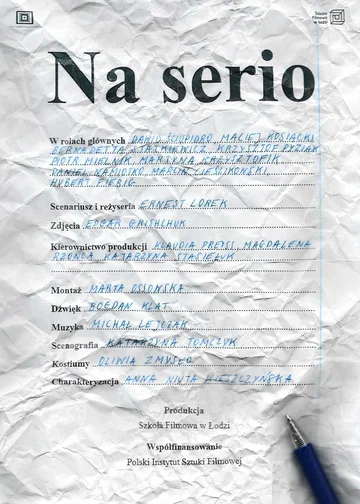 Szkoła
Filmowa
w Łodzi
Na serio
W rolach głównych DAWID ŚCIUPIDRO, MACIEJ KOSIACKI
BERNADETTA STATKIEWICZ, KRZYSZTOF PYZIAK
PIOTR MIELNIK, MARTYNA KRZYSZTOFIK,
DANIEL NAMIOTKO, MARCIN CIEŚLIKOWSKI,
HUBERT FIEBIG
Scenariusz i reżyseria ERNEST LOREK
Zdjęcia EDGAR GRISHCHUK
Kierownictwo produkcji KLAUDIA PREISS, MAGDALENA
RZONCA, KATARZYNA STASIEŁUK
Montaż MARTA OSSOWSKA
Dźwięk BOGDAN KLAT
Muzyka MICHAŁ LEJCZAK
Scenografia KATARZYNA TOMCZYK
Kostiumy OLIWIA ZMYSŁO
Charakteryzacja ANNA NIUTA
Produkcja
Szkoła Filmowa w Łodzi
Współfinansowanie
Polski Instytut Sztuki Filmowej